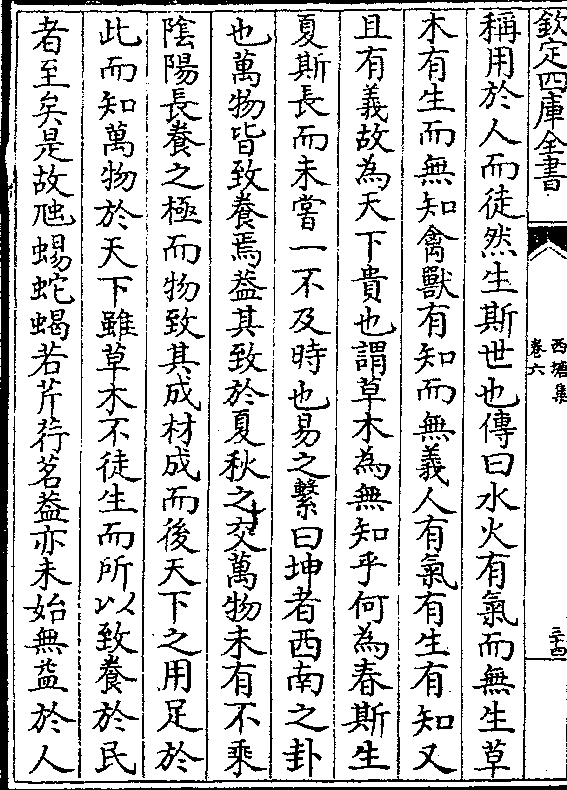 欽定四庫全書
西塘集
卷六
三十四
稱用於人而徒然生斯世也傳曰水火有氣而無生草
木有生而無知禽獸有知而無義人有氣有生有知又
且有義故為天下貴也謂草木為無知乎何為春斯生
夏斯長而未嘗一不及時也易之繫曰坤者西南之卦
也萬物皆致養焉葢其致於夏秋之交萬物未有不乘
陰陽長養之極而物致其成材成而後天下之用足於
此而知萬物於天下雖草木不徒生而所以致養於民
者至矣是故虺蜴蛇蝎若芹荇茗葢亦未始無益於人